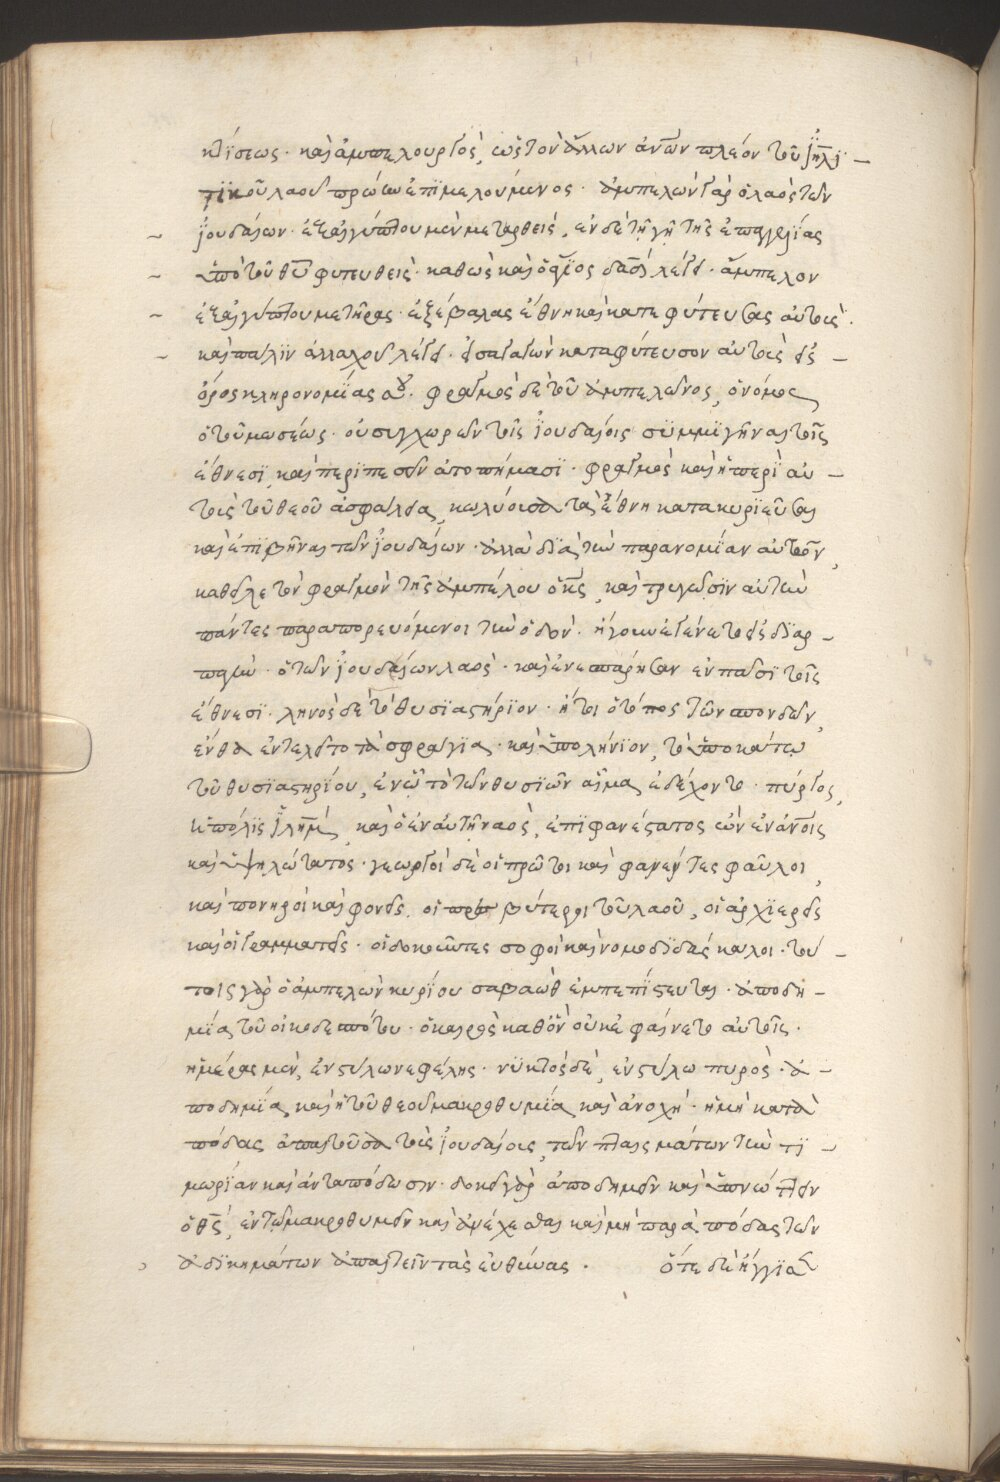 κτίσεως· καὶ ἀμπελουργὸς, ὡς τὸν ἄλλων ἀνων πλέον τοῦ ἰηλι
τικοῦ λαοῦ πρώην ἐπιμελούμενος· ἀμπελὼν γὰρ ὁ λαὸς τῶν
ἰουδαίων· ἐξ αἰγύπτου μὲν μεταρθεὶς, ἐν δὲ τῇ γῇ τῆς ἐπαγγελίας
ὑπὸ τοῦ θυ φυτευθεὶς· καθὼς καὶ ὁ θεῖος δαδ λέγει· ἄμπελον
ἐξ αἰγύπτου μετῆρας· ἐξέβαλας ἔθνη καὶ κατεφύτευσας αὐτοὺς·
καὶ πάλιν ἀλλαχοῦ λέγει· εἰσαγαγὼν καταφύτευσον αὐτοὺς εἰς
ὄρος κληρονομίας σου· φραγμὸς δὲ τοῦ ἀμπελῶνος, ὁ νόμος
ὁ τοῦ μωσέως· οὐ συγχωρῶν τοῖς ἰουδαίοις συμμιγῆναι τοῖς
ἔθνεσι, καὶ περιπεσεῖν ἀτοπήμασι· φραγμὸς καὶ ἡ περὶ αὐ
τοὺς τοῦ θεοῦ ἀσφάλεια, κωλύουσα τὰ ἔθνη κατακυριεῦσαι
καὶ ἐπιβῆναι τῶν ἰουδαίων· ἀλλὰ διὰ τὴν παρανομίαν αὐτῶν,
καθεῖλε τὸν φραγμὸν τῆς ἀμπέλου ὁ κς, καὶ τρυγῶσιν αὐτὴν
πάντες παραπορευόμενοι τὴν ὁδόν· ἤγουν ἐγένετο εἰς διαρ
παγὴν· ὁ τῶν ἰουδαίων λαὸς· καὶ ἐνεσπάρησαν ἐν πᾶσι τοῖς
ἔθνεσι· ληνὸς δὲ τὸ θυσιαστήριον· ἤτοι ὁ τόπος τῶν σπονδῶν,
ἔνθα ἐντελεῖτο τὰ σφραγια· καὶ ὑπολήνιον, τὸ ὑποκάτω
τοῦ θυσιαστηρίου, ἐν ᾧ τὸ τῶν θυσιῶν αἷμα ἐδέχοντο· πύργος,
ἡ πόλις ἰλημ, καὶ ὁ ἐν αὐτῇ ναὸς, ἐπιφανέστατος ὢν ἐν ἀνοις
καὶ ὑψηλώτατος· γεωργοὶ δὲ οἱ πρῶτοι καὶ φανέντες φαῦλοι,
καὶ πονηροὶ καὶ φονεῖς, οἱ πρεσβύτεροι τοῦ λαοῦ, οἱ ἀρχιερεῖς
καὶ οἱ γραμματεῖς· οἱ δοκοῦντες σοφοὶ καὶ νομοδιδάσκαλοι· τού
τοις γὰρ ὁ ἀμπελὼν κυρίου σαβαὼθ ἐμπεπίστευται· ἀποδη
μία τοῦ οἰκοδεσπότου· ὁ καιρὸς καθ' ὃν οὐκ ἐφαίνετο αὐτοῖς·
ἡμέρας μὲν, ἐν στύλω νεφέλης· νυκτὸς δὲ, ἐν στύλω πυρὸς· ἀ
ποδημία, καὶ ἡ τοῦ θεοῦ μακροθυμία, καὶ ἀνοχή· ἡ μὴ κατὰ
πόδας ἀπαιτοῦσα τοὺς ἰουδαίοις, τῶν πταισμάτων τὴν τι
μωρίαν καὶ ἀνταπόδωσιν· δοκεῖ γὰρ ἀποδημεῖν καὶ ὑπνώττειν
ὁ θς, ἐν τῷ μακροθυμεῖν καὶ ἀνέχεσθαι καὶ μὴ παρὰ πόδας τῶν
ἀδικημάτων ἀπαιτεῖν τὰς εὐθύνας· ὅτε δὲ ἤγγισ